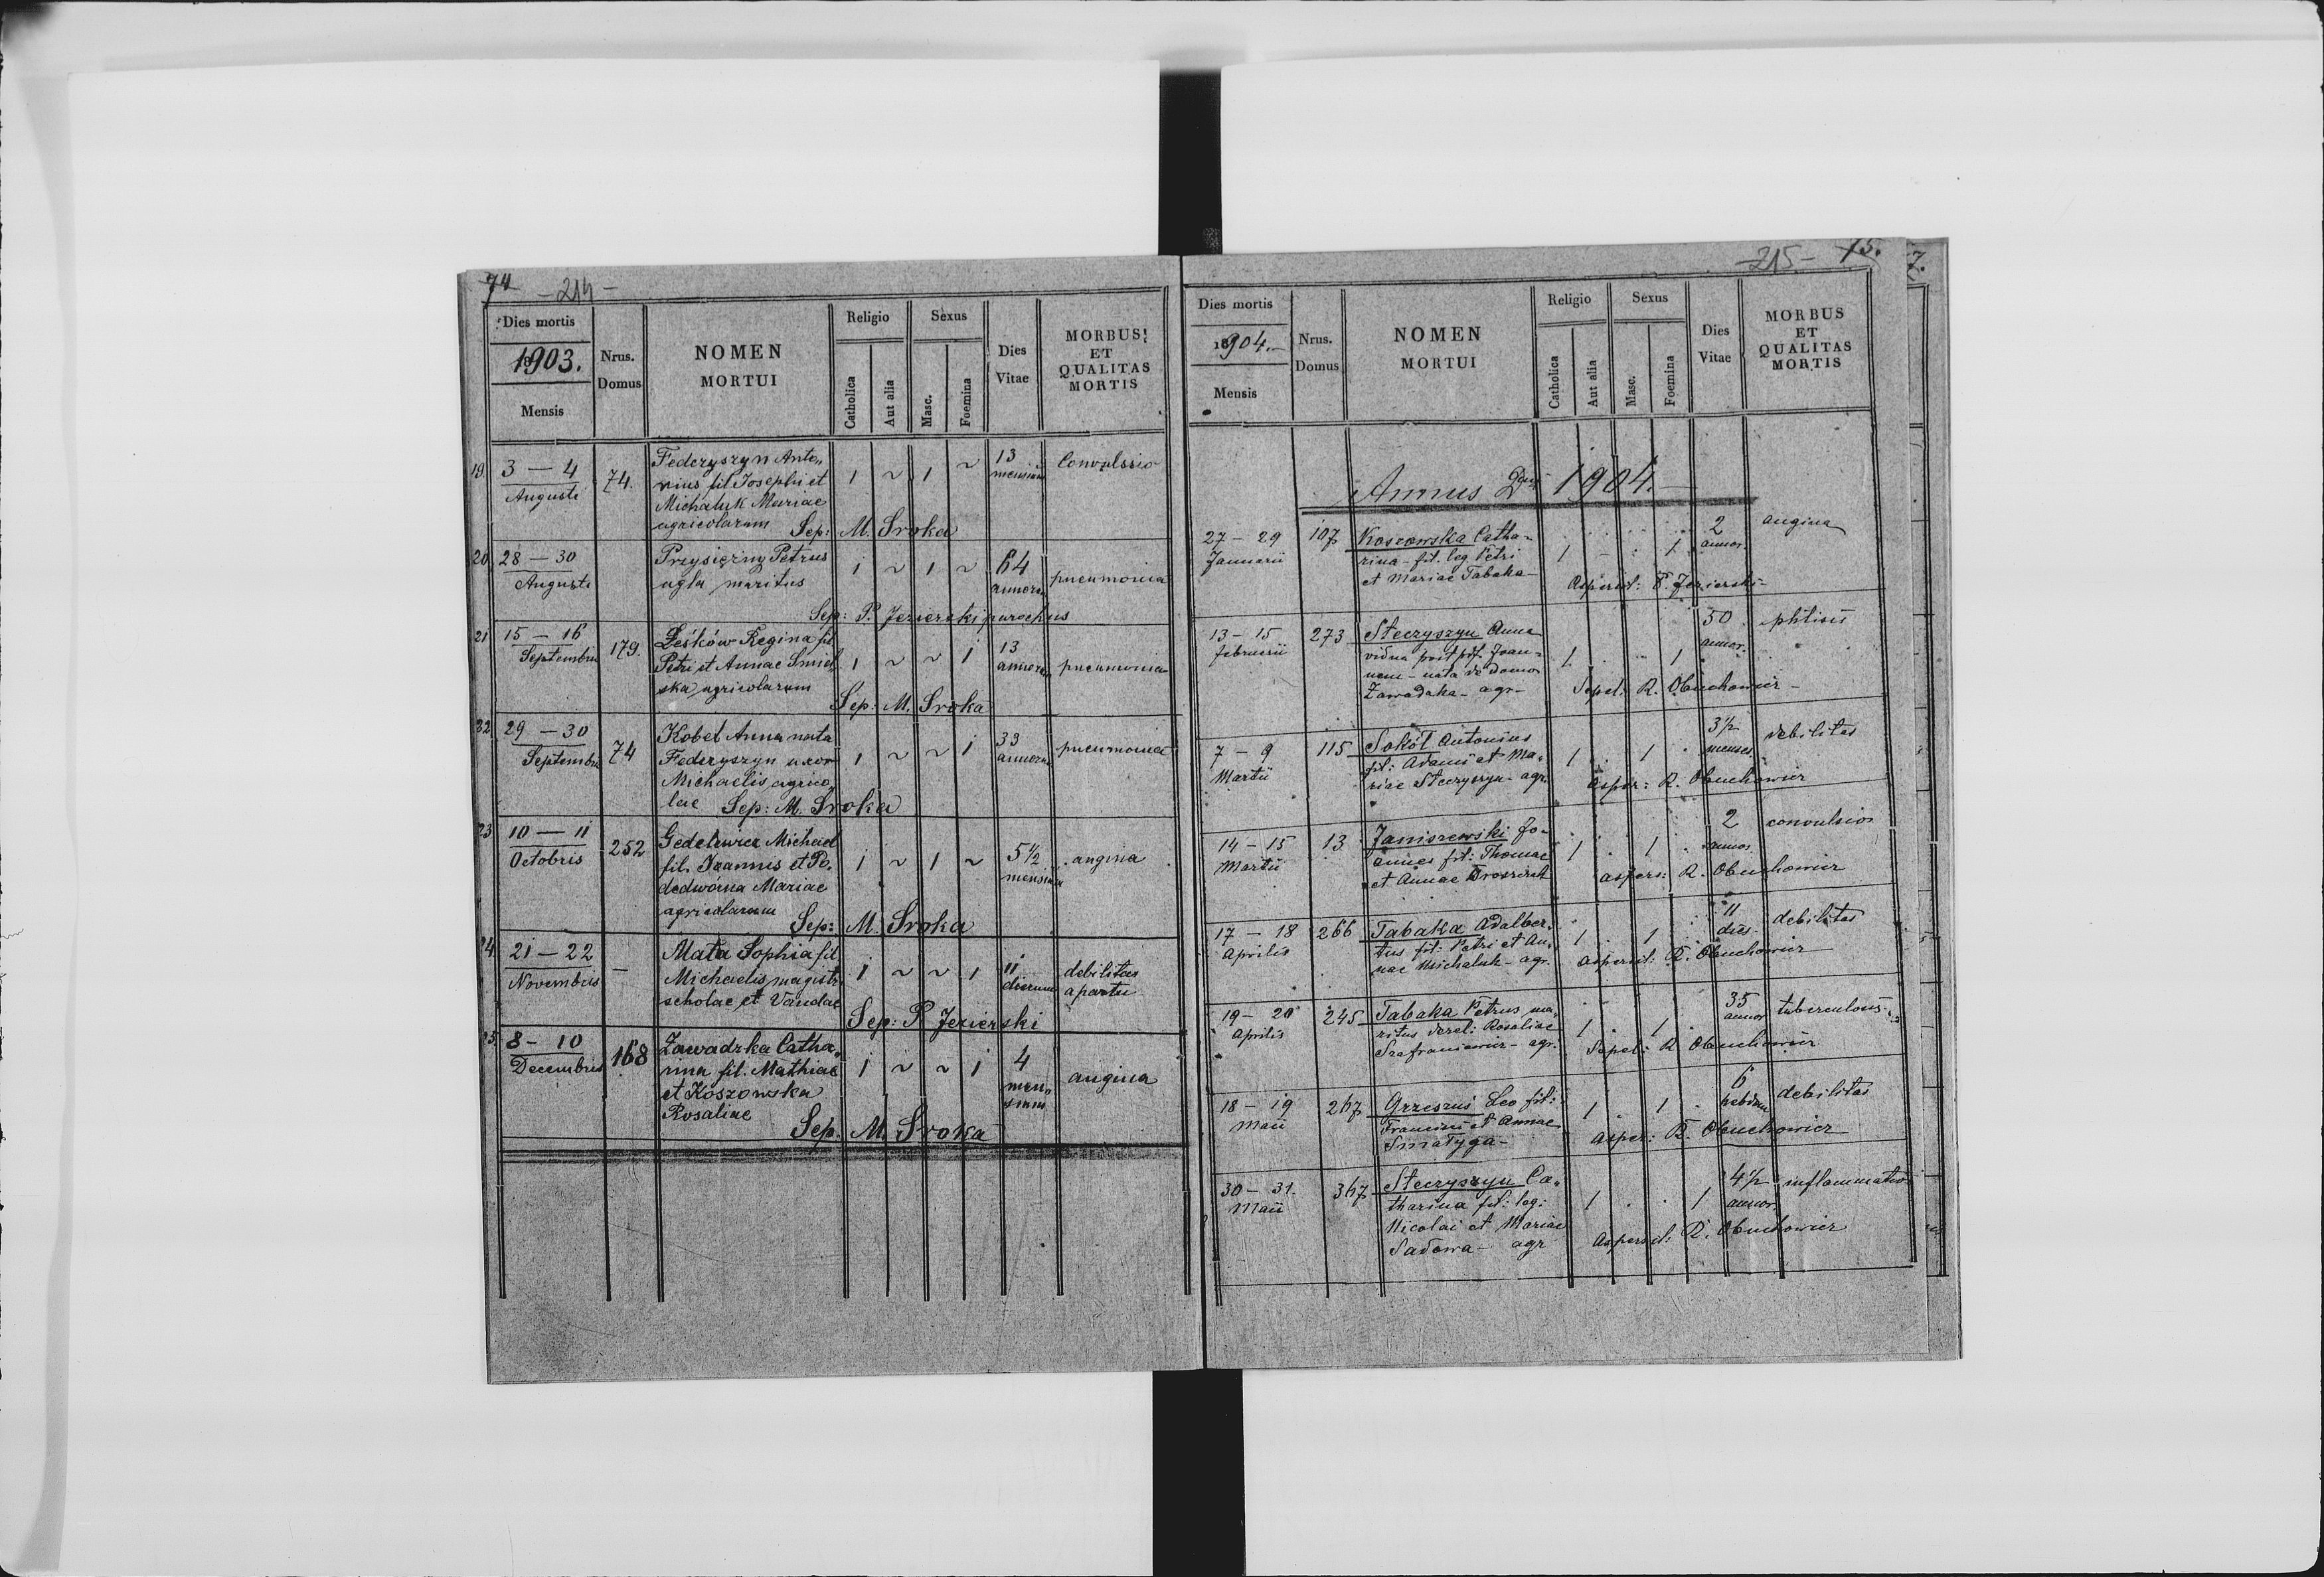 74 - 214 -
Dies mortis
1903.
Mensis
Nrus.
Domus
NOMEN
MORTUI
Religio
Catholica
Aut alia
Sexus
Masc.
Foemina
Dies
Vitae
MORBUS
ET
QUALITAS
MORTIS
19 3 — 4
Augusti
74.
Federyszyn Anto„
nius fil Josephi et
Michaluk Mariae
agricolarum
1 ~ 1 ~
13
mensium
Convulssio
Sep: M. Sroka
20 28 — 30
Augusti
Przysiężny Petrus
agla maritus
1 ~ 1 ~
64
annorum
pneumonia
Sep: P. Jezierski parochus
21 15 — 16
Septembris
179.
Leśków Regina fil
Petri et Annae Smiel
ska agricolarum
1 ~ ~ 1
13
annorum
pneumonia
Sep: M. Sroka
22 29 — 30
Septembris
74
Kobel Anna nata
Federyszyn uxor
Michaelis agrico
lae
1 ~ ~ 1
33
annorum
pneumonia
Sep: M. Sroka
23 10 — 11
Octobris
252
Gedelewicz Michael
fil. Joannis et Po„
dedwórna Mariae
agricolarum
1 ~ 1 ~
5½
mensium
angina
Sep: M. Sroka
24 21 — 22
Novembris
—
Mata Sophia fil
Michaelis magistri
scholae et Vandae
1 ~ ~ 1
11
dierum
debilitas
a partu
Sep: P. Jezierski
25 8 — 10
Decembris
168
Zawadzka Catha„
rina fil. Mathiae
et Koszowska
Rosaliae
1 ~ ~ 1
4
men„
sium
angina
Sep. M. Sroka
- 215 - 75.
7.
Dies mortis
1904.-
Mensis
Nrus.
Domus
NOMEN
MORTUI
Religio
Catholica
Aut alia
Sexus
Masc.
Foemina
Dies
Vitae
MORBUS
ET
QUALITAS
MORTIS
Annus Dni 1904.-
27 - 29
Januarii
107
Koszowska Catha-
rina - fil. leg Petri
et Mariae Tabaka -
1 - . 1
2
annor.
angina
Aspersit: P. Jezierski -
13 - 15
Februarii
273
Steczyszyn Anna
vidua post pdf. Joan-
nem - nata de domo
Zawadzka - agr -
1 . - 1
50
annor.
phtisis
Sepel: R. Obuchowicz -
7 - 9
Martii
115
Sokół Antonius
fil: Adami et Ma-
riae Steczyszyn - agr.
1 . 1 .
3½
menses
debilitas
Asper: R. Obuchowicz
14 - 15
Martii
13
Janiszewski Jo-
annes fil: Thomae
et Annae
1 . 1 .
2
annos
convulsio
aspers: R. Obuchowicz
17 - 18
Aprilis
266
Tabaka Adalber-
tus fil: Petri et An-
nae Michaluk - agr.
1 . 1 .
11
dies.
debilitas
Aspersit: R. Obuchowicz
19 - 20
Aprilis
245
Tabaka Petrus ma-
ritus derel: Rosaliae
Szafraniewicz - agr.
1 . 1 .
35
annor
tuberculosis
Sepel: R. Obuchowicz
18 - 19
Maii
267
Grzeszuś Leo fil:
Francisci et Annae
Smatyga -
1 . 1 .
6
hebdom
debilitas
Asper: R. Obuchowicz
30 - 31.
Maii
367
Steczyszyn Ca-
tharina fil: leg:
Nicolai et Mariae
Sadowa - agr
1 . . 1
4½
annor.
inflammatio
Aspersit: R. Obuchowicz